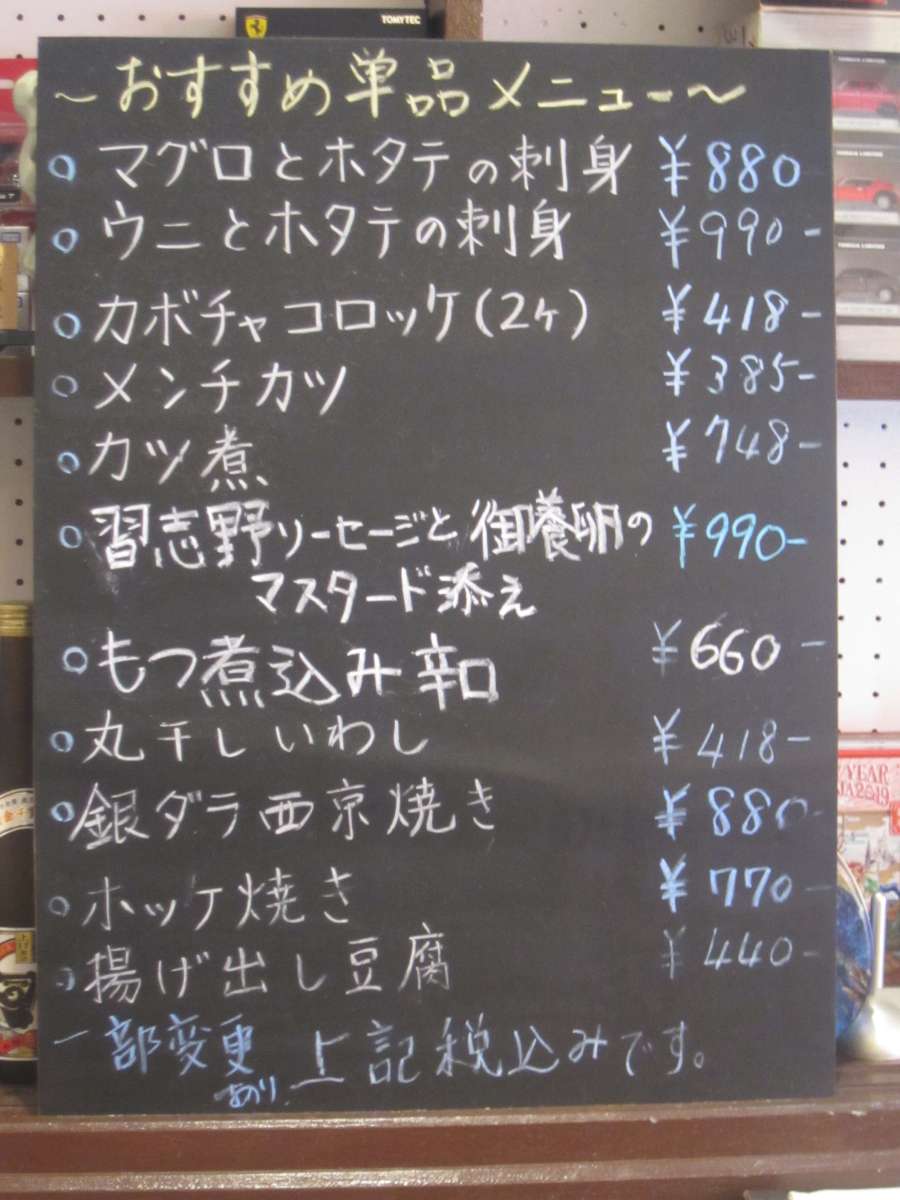 TOMYTEC
~おすすめ単品メニュー~
○マグロとホタテの刺身 ¥880
○ウニとホタテの刺身 ¥990-
○カボチャコロッケ(2ヶ) ¥418-
○メンチカツ ¥385-
○カツ煮 ¥748-
○習志野ソーセージと御養卵の ¥990-
マスタード添え
○もつ煮込み辛口 ¥660-
○丸干しいわし ¥418-
○銀ダラ西京焼き ¥880-
○ホッケ焼き ¥770-
○揚げ出し豆腐 ¥440-
一部変更あり 上記税込みです。